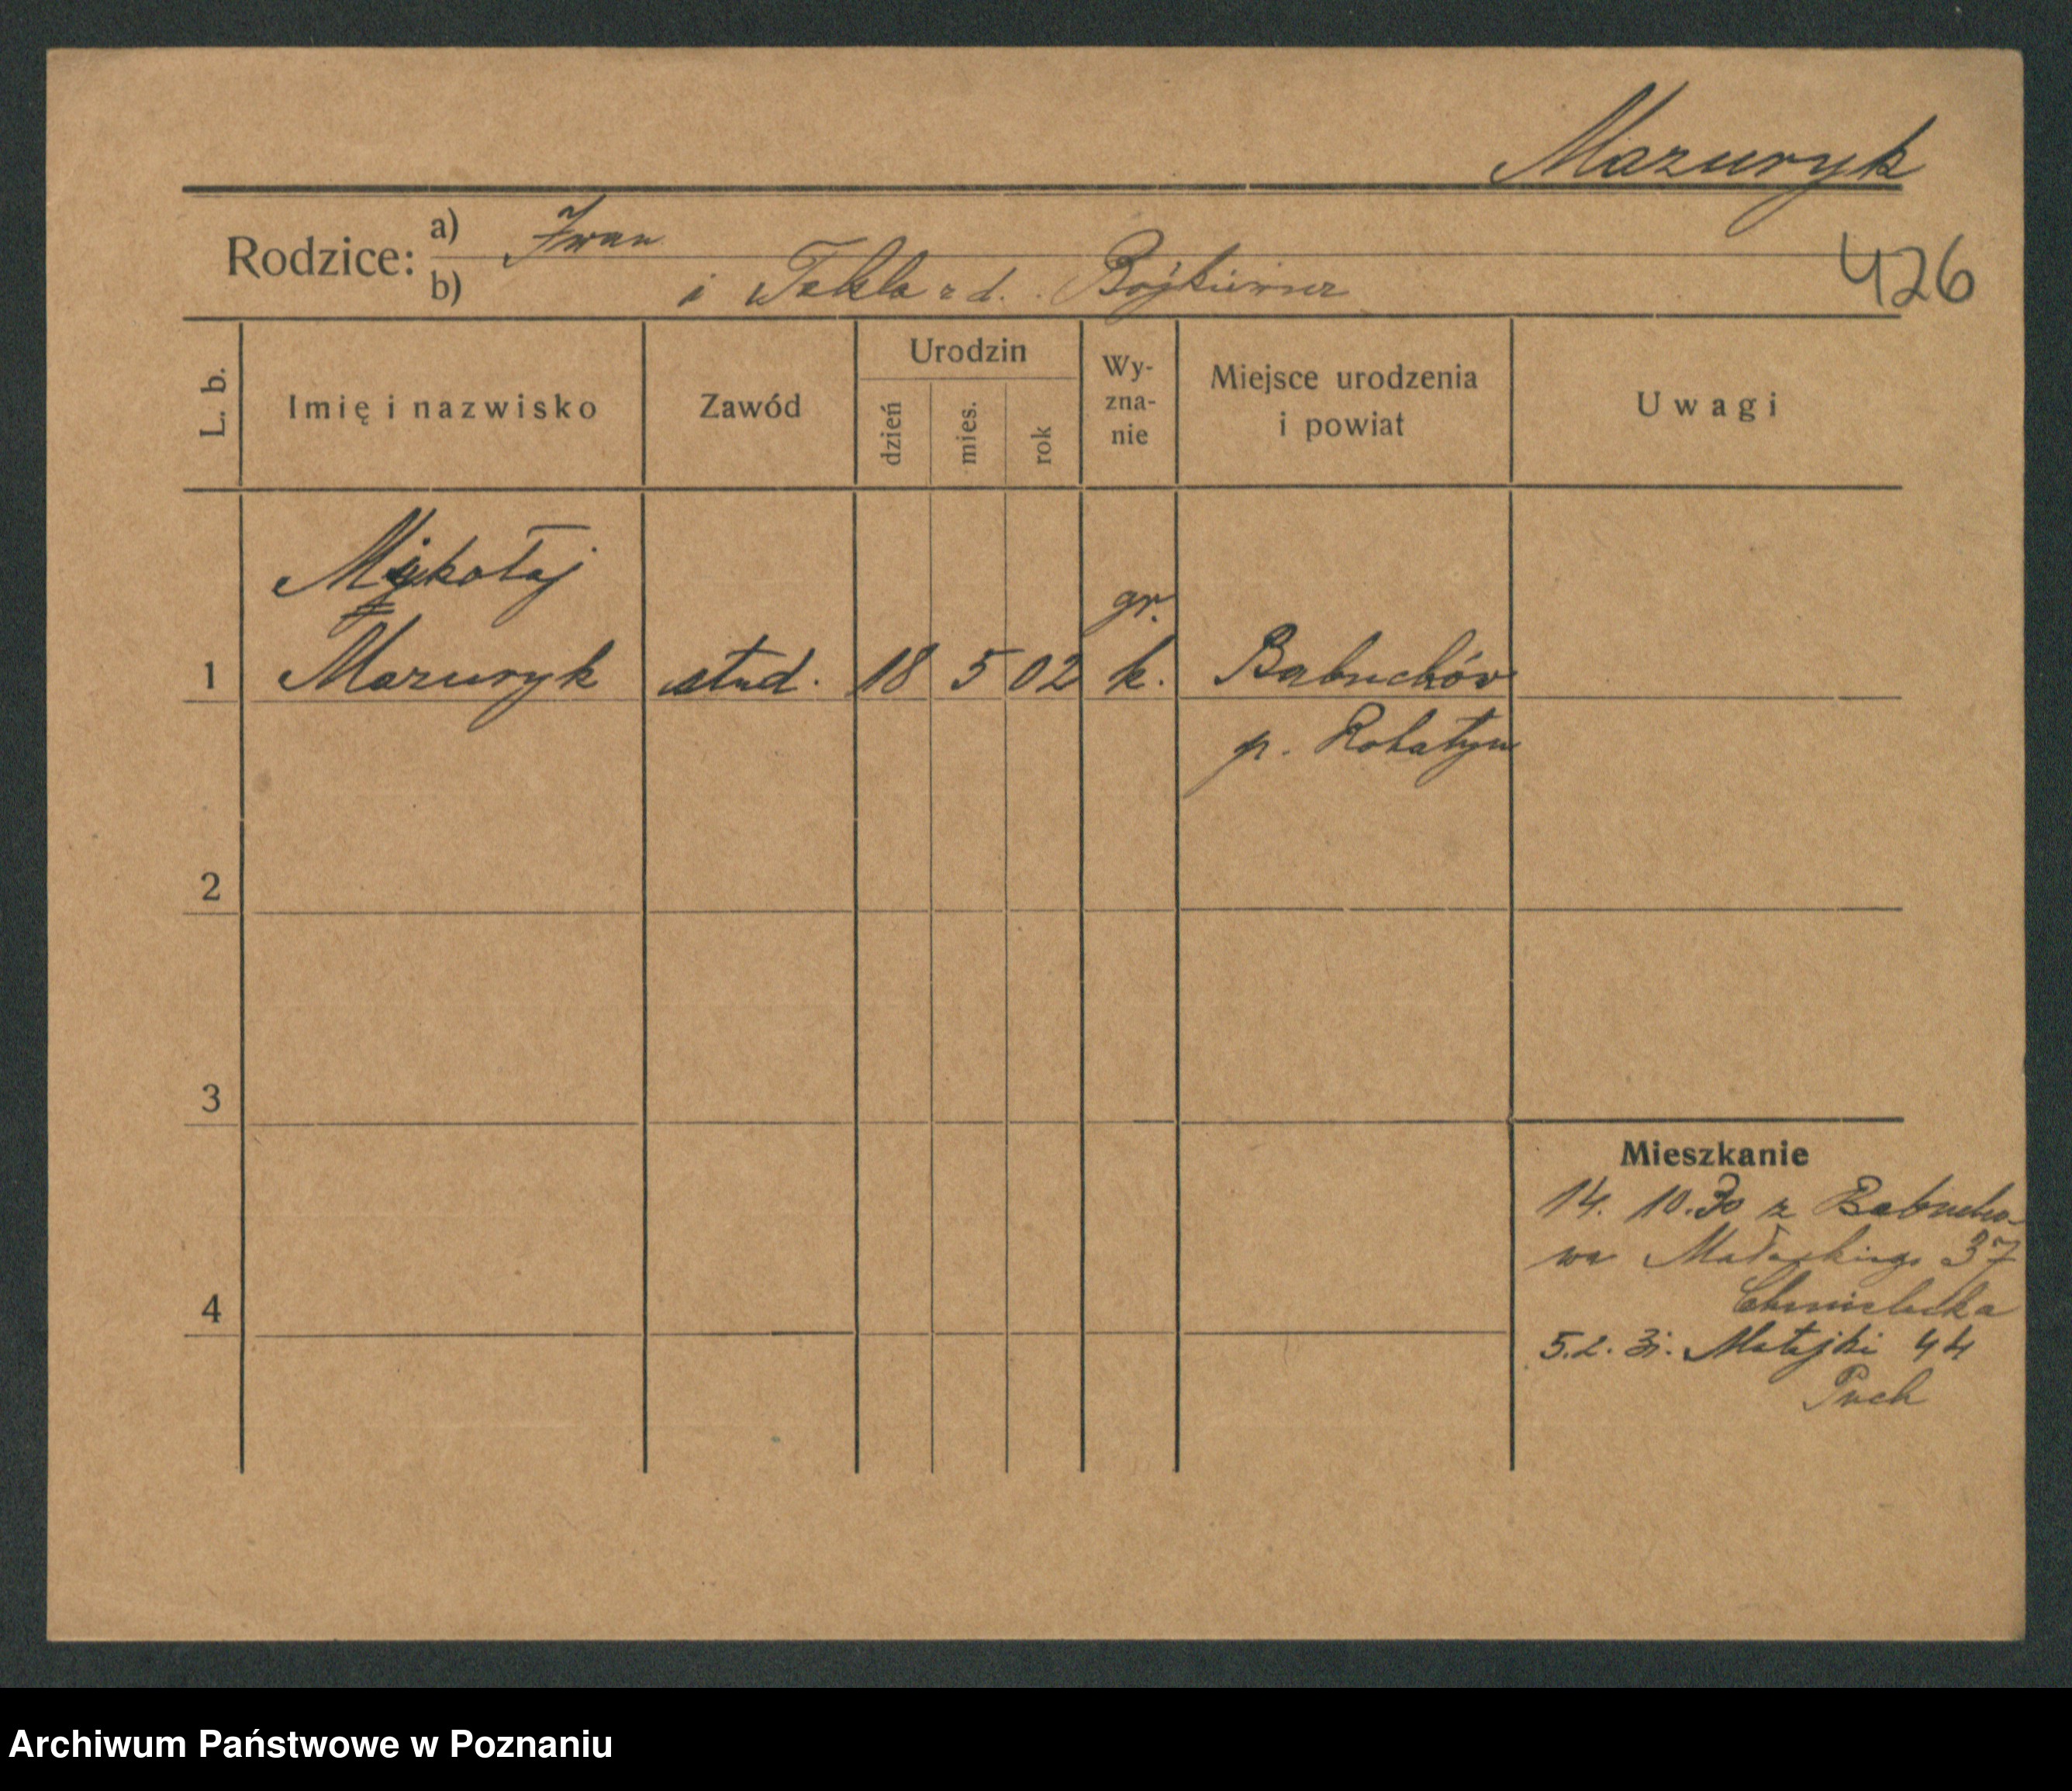 Mazuryk
Rodzice: a) Iwan
b) i Tekla z d. Bójkiewicz
426
L. b. Imię i nazwisko Zawód Urodzin dzień mies. rok Wy-zna-nie Miejsce urodzenia i powiat Uwagi
Mikołaj gr.
1 Mazuryk stud. 18 5 02 k. Babuchów
p. Rohatyn
2
3
Mieszkanie
14. 10. 30 z Babucho-
wa Małeckiego 37
Chmielecka
4
5. 2. 31. Matejki 44
Puch
Archiwum Państwowe w Poznaniu